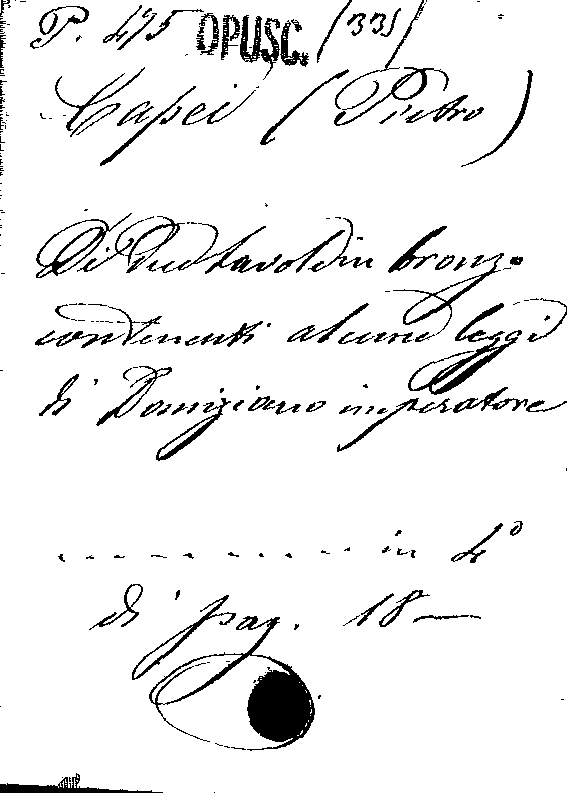 P. 475 OPUSC. (331)
Capei (Pietro)
Di due tavole in bronzo
contenenti alcune leggi
di Domiziano imperatore
- - - - - - - - - in 4º
di pag. 18 —